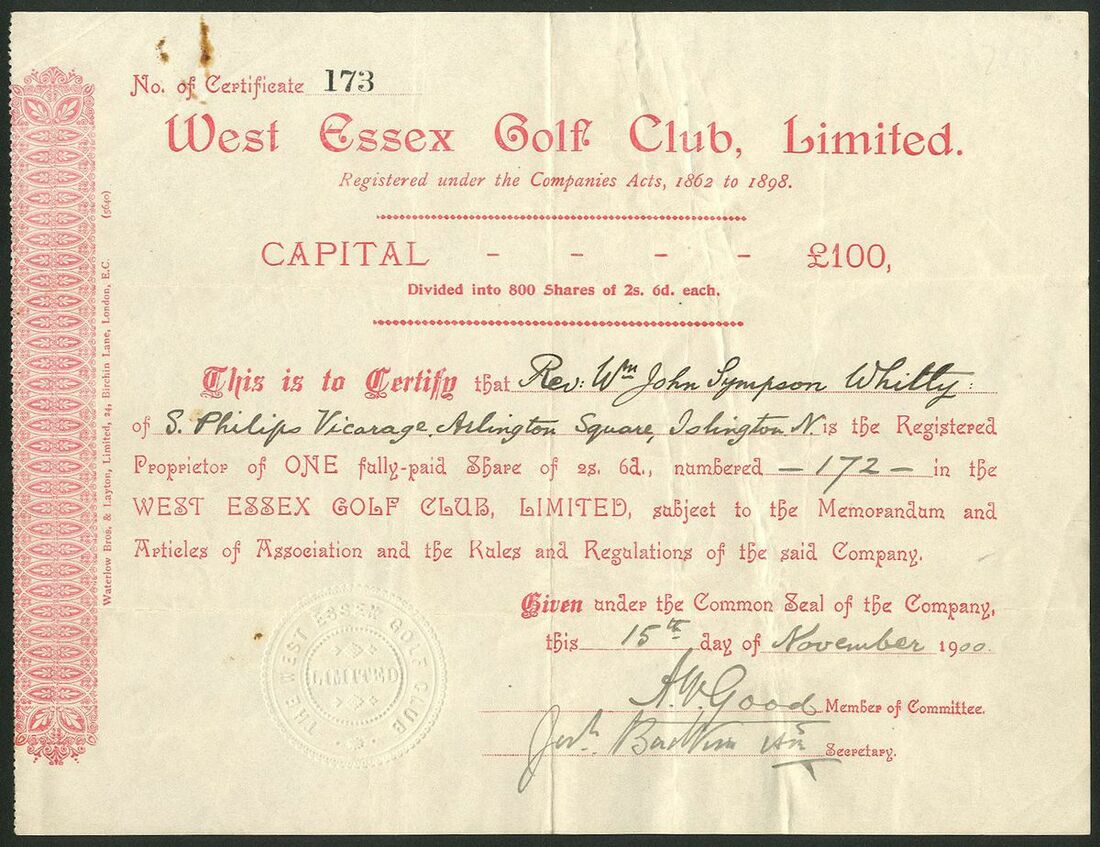 No. of Certificate 173
West Essex Golf Club, Limited.
Registered under the Companies Acts, 1862 to 1898.
CAPITAL - - - - £100,
Divided into 800 Shares of 2s. 6d. each.
This is to Certify that Rev: Wm John Sympson Whitty:
of S. Philips Vicarage, Arlington Square, Islington N. is the Registered
Proprietor of ONE fully-paid Share of 2s. 6d., numbered - 172 - in the
WEST ESSEX GOLF CLUB, LIMITED, subject to the Memorandum and
Articles of Association and the Rules and Regulations of the said Company.
Given under the Common Seal of the Company,
this 15th day of November 1900.
A.W. Good Member of Committee.
Secretary.
THE WEST ESSEX GOLF CLUB
LIMITED
Waterlow Bros. & Layton, Limited, 24, Birchin Lane, London, E.C. (5640)